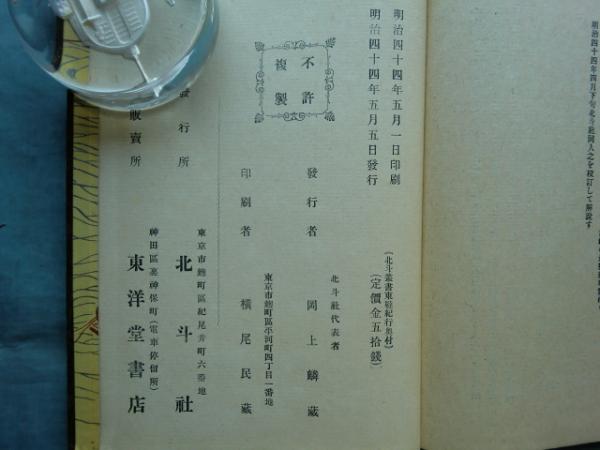 明治四十四年四月下旬北斗社同人之を校訂して解說す
明治四十四年五月一日印刷
明治四十四年五月五日發行
(北斗叢書東遊紀行奧付)
(定價金五拾錢)
不許
複製
北斗社代表者
發行者 岡上麟藏
東京市麴町區平河町四丁目一番地
印刷者 橫尾民藏
東京市麴町區紀尾井町六番地
發行所 北斗社
神田區裏神保町(電車停留所)
販賣所 東洋堂書店